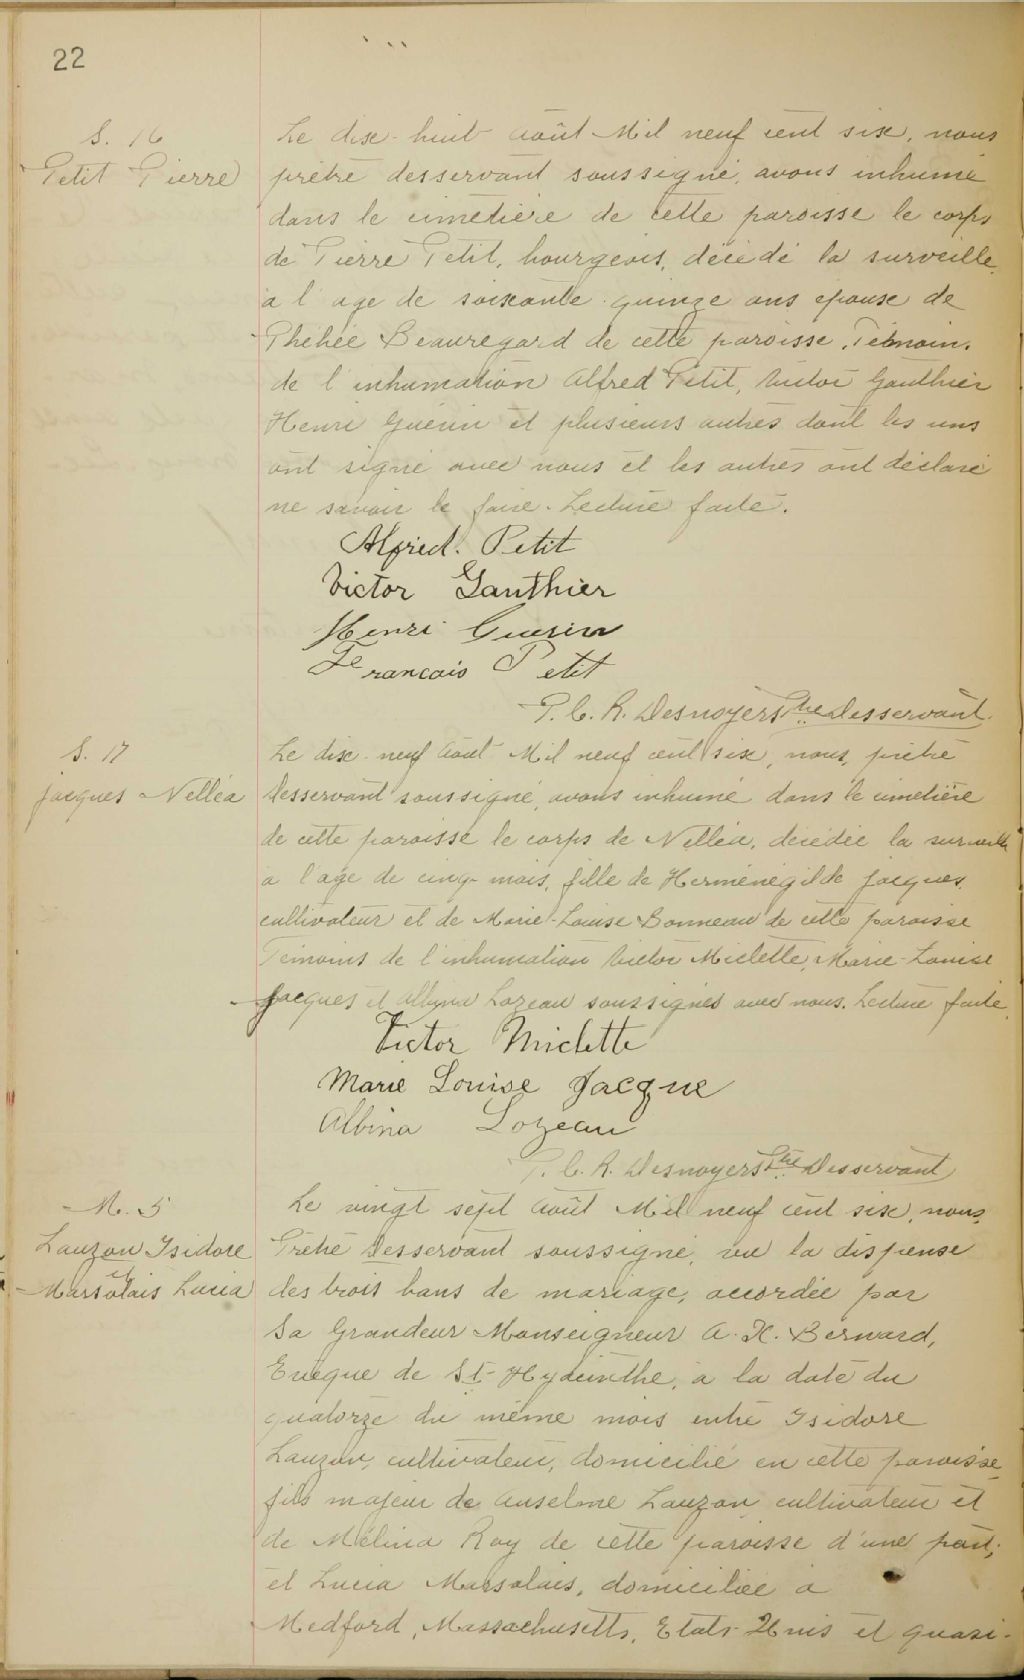 22
S. 16
Petit Pierre
Le dix-huit Août Mil neuf cent six, nous
prêtre desservant soussigné, avons inhumé
dans le cimetière de cette paroisse le corps
de Pierre Petit, bourgeois, décédé la surveille
à l'age de soixante quinze ans epoux de
Phébée Beauregard de cette paroisse. Témoins
de l'inhumation Alfred Petit, Victor Gauthier
Henri Guérin et plusieurs autres dont les uns
ont signé avec nous et les autres ont déclaré
ne savoir le faire. Lecture faite.
Alfred. Petit
Victor Gauthier
Henri Guerin
Francois Petit
P. C. R. Desnoyers Ptre Desservant.
S. 17
Jacques Nelléa
Le dix-neuf Août Mil neuf cent six, nous, prêtre
desservant soussigné, avons inhumé dans le cimetière
de cette paroisse le corps de Nelléa, décédée la surveille
a l'age de cinq mois, fille de Herménégilde Jacques
cultivateur et de Marie-Louise Bonneau de cette paroisse
Témoins de l'inhumation Victor Miclette, Marie-Louise
Jacques et Albina Lozeau soussignés avec nous. Lecture faite.
Victor Miclette
Marie Louise Jacque
Albina Lozeau
P. C. R. Desnoyers Ptre Desservant
M. 5
Lauzon Isidore
et
Marsolais Lucia
Le vingt sept Août Mil neuf cent six, nous,
Prêtre Desservant soussigné, vu la dispense
des trois bans de mariage, accordée par
Sa Grandeur Monseigneur A. X. Bernard,
Evêque de St-Hyacinthe, à la date du
quatorze du même mois entre Isidore
Lauzon, cultivateur, domicilié en cette paroisse,
fils majeur de Anselme Lauzon cultivateur et
de Mélina Roy de cette paroisse d'une part;
et Lucia Marsolais, domiciliée a
Medford, Massachusetts, Etats-Unis et quasi-